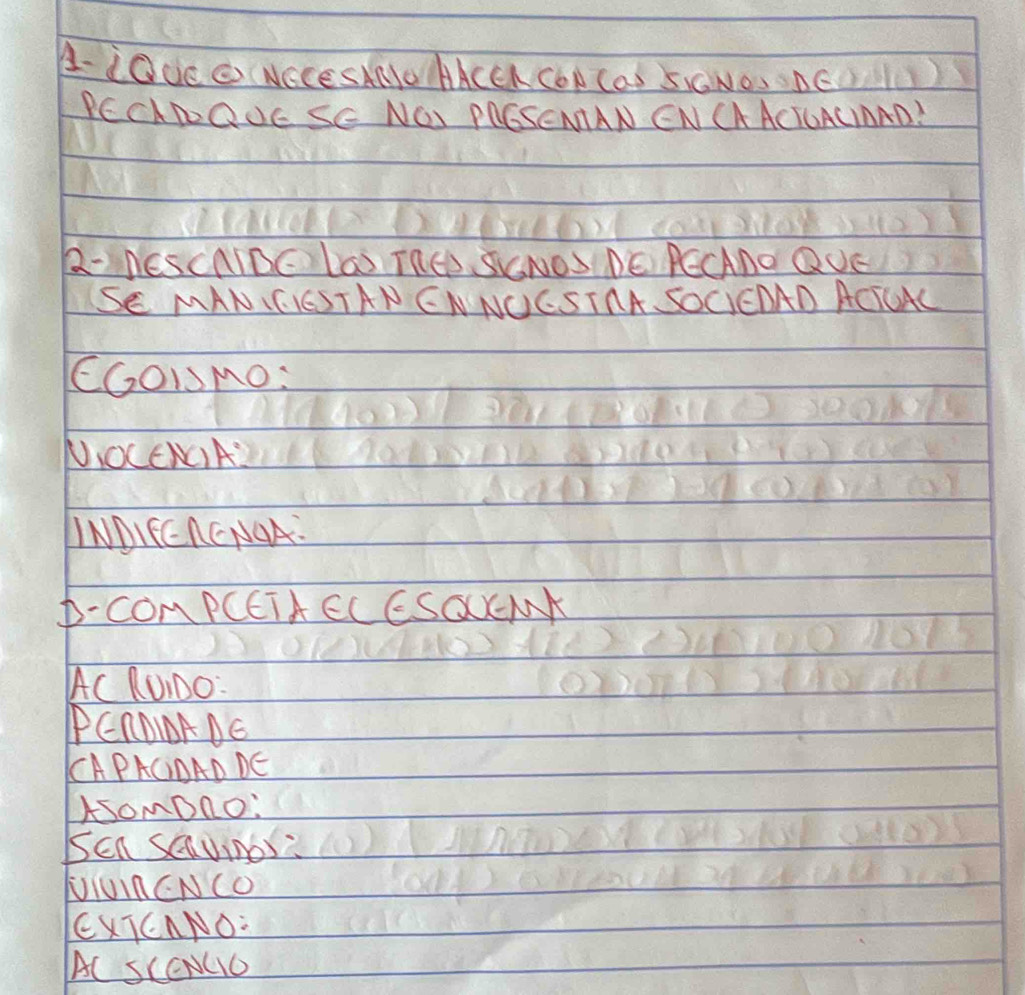 1- ¿QUE ES NECESARIO HACER CON LOS SIGNOS DE
PECADO QUE SE NOS PRESENTAN EN LA ACTUALIDAD?
2- DESCRIBE LOS TRES SIGNOS DE PECADO QUE
SE MANIFIESTAN EN NUESTRA SOCIEDAD ACTUAL
EGOISMO:
VIOLENCIA:
INDIFERENCIA:
3- COMPLETA EL ESQUEMA
AL RUIDO:
PERDIDA DE
CAPACIDAD DE
ASOMBRO:
SER SERVIDOS:
VIVIR EN LO
EXTERNO:
AL SILENCIO